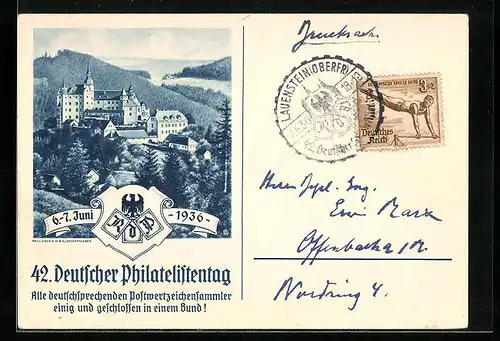 Drucksache
LAUENSTEIN (OBERFR)
42. Deutscher
Deutsches
Reich
6.-7. Juni
RdP
- 1936 -
Herrn Dipl. Ing.
Erwin Marx
Offenbach a/M.
Nordring 4.
42. Deutscher Philatelistentag
Alle deutschsprechenden Postwertzeichensammler
einig und geschlossen in einem Bund!